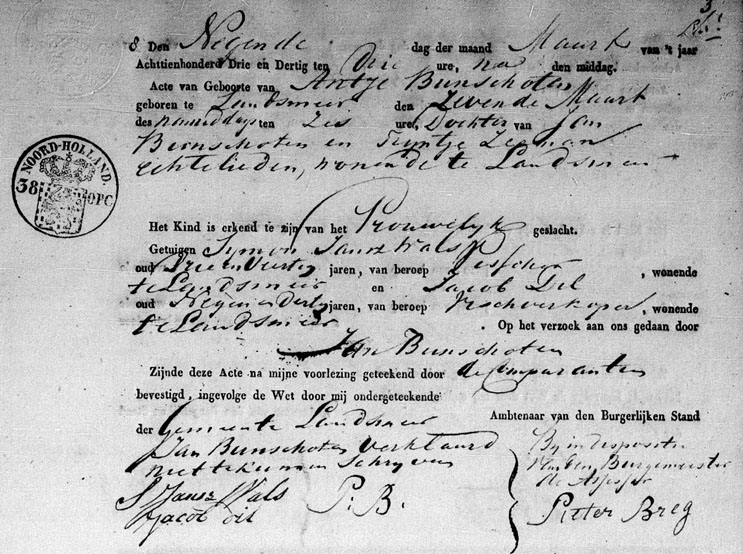 3
8 Den Negende dag der maand Maart van 't jaar
Achttienhonderd Drie en Dertig ten Drie ure, na den middag.
Acte van Geboorte van Antje Bunschoten
geboren te Landsmeer den Zevende Maart
des namiddags ten Zes ure, Dochter van Jan
Bunschoten en Zeeman
echtelieden, wonende te Landsmeer
NOORD-HOLLAND.
38 OPC
Het Kind is erkend te zijn van het Vrouwelyk geslacht.
Getuigen Symon Jansz Wals
oud Drie en Veertig jaren, van beroep , wonende
te Landsmeer en Jacob Dil
oud Negen en Dertig jaren, van beroep Vischverkoper, wonende
te Landsmeer . Op het verzoek aan ons gedaan door
Jan Bunschoten
Zijnde deze Acte na mijne voorlezing geteekend door de Comparanten
bevestigd, ingevolge de Wet door mij ondergeteekende
Ambtenaar van den Burgerlijken Stand
der Gemeente Landsmeer
Jan Bunschoten verklaard
niet te kunnen Schryven
S Jansz Wals
Jacob dil
P. B.
By indispositie
van den Burgemeester
de Assessor
Pieter Breg